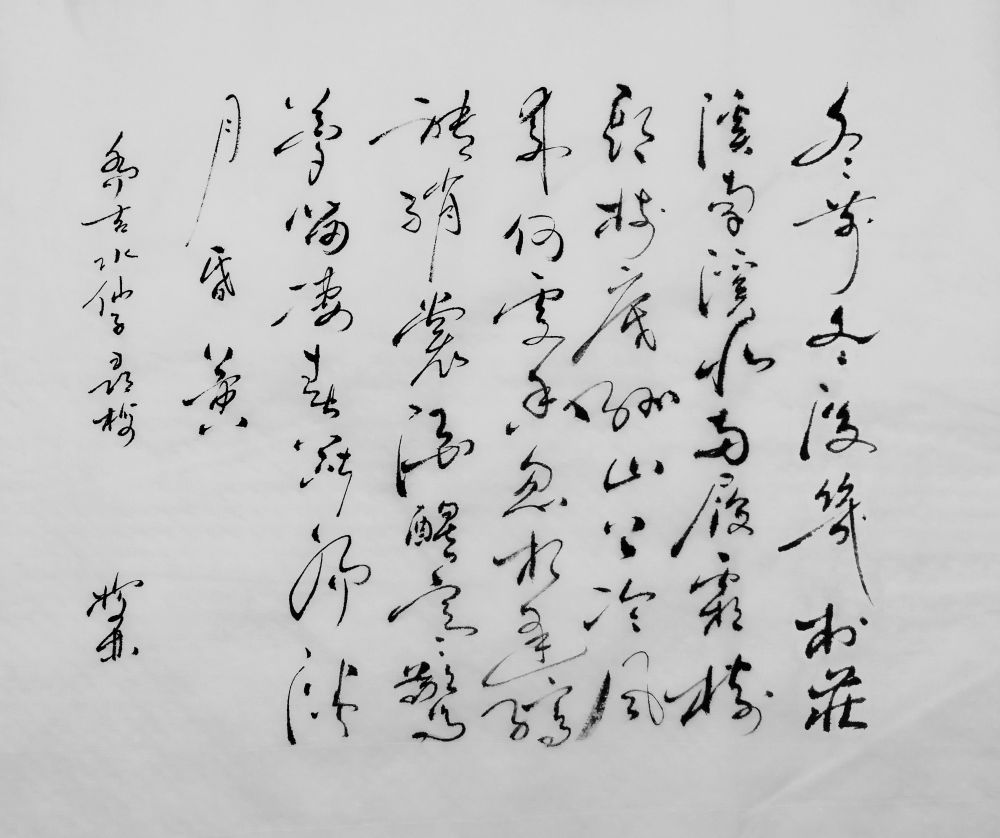 冬前冬後幾村莊
溪南溪北兩履霜樹
頭樹底孤山上冷風
來何處香忽相逢縞
袂綃裳酒醒寒驚
夢笛淒春斷腸淡
月昏黃
喬吉水仙子尋梅